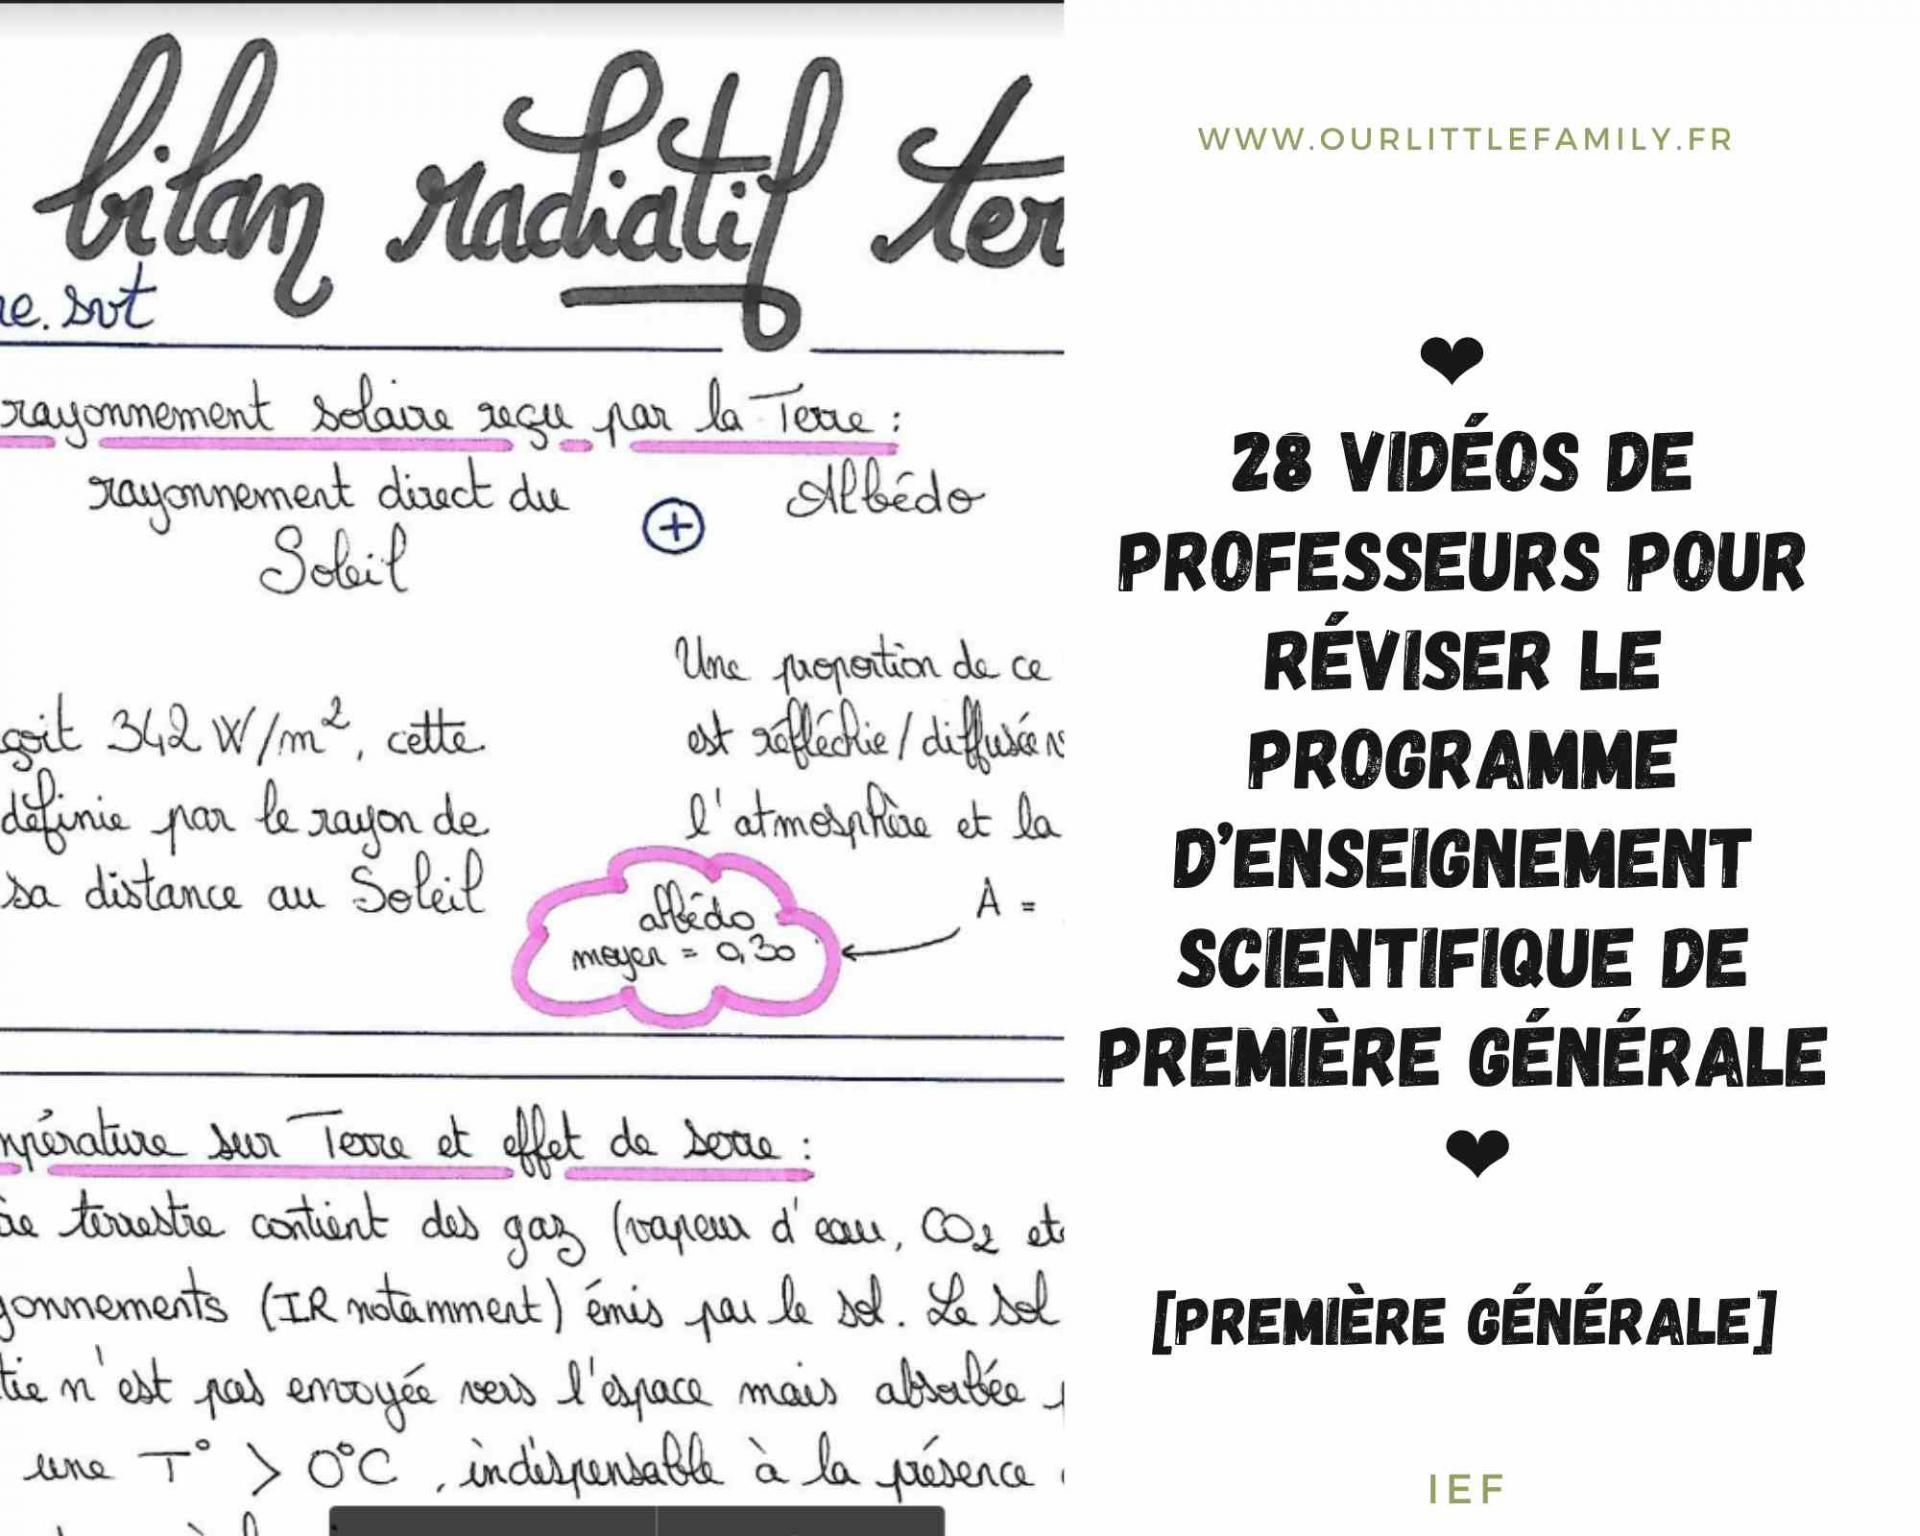 bilan radiatif ter
re.svt
rayonnement solaire reçu par la Terre :
rayonnement direct du
Soleil
+
Albédo
çoit 342 W/m², cette
définie par le rayon de
sa distance au Soleil
Une proportion de ce
est réfléchie / diffusée
l'atmosphère et la
albédo
moyen = 0,30
A =
mpérature sur Terre et effet de serre :
re terrestre contient des gaz (vapeur d'eau, CO2 etc
yonnements (IR notamment) émis par le sol. Le sol
tie n'est pas envoyée vers l'espace mais absorbée
une T° > 0°C, indispensable à la présence
WWW.OURLITTLEFAMILY.FR
❤
28 VIDÉOS DE
PROFESSEURS POUR
RÉVISER LE
PROGRAMME
D'ENSEIGNEMENT
SCIENTIFIQUE DE
PREMIÈRE GÉNÉRALE
❤
[PREMIÈRE GÉNÉRALE]
IEF